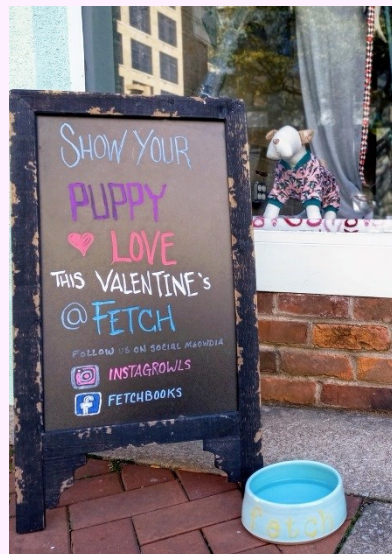 SHOW YOUR
PUPPY
LOVE
THIS VALENTINE'S
@ FETCH
FOLLOW US ON SOCIAL MEOWDIA
INSTAGROWLS
FETCHBOOKS
fetch